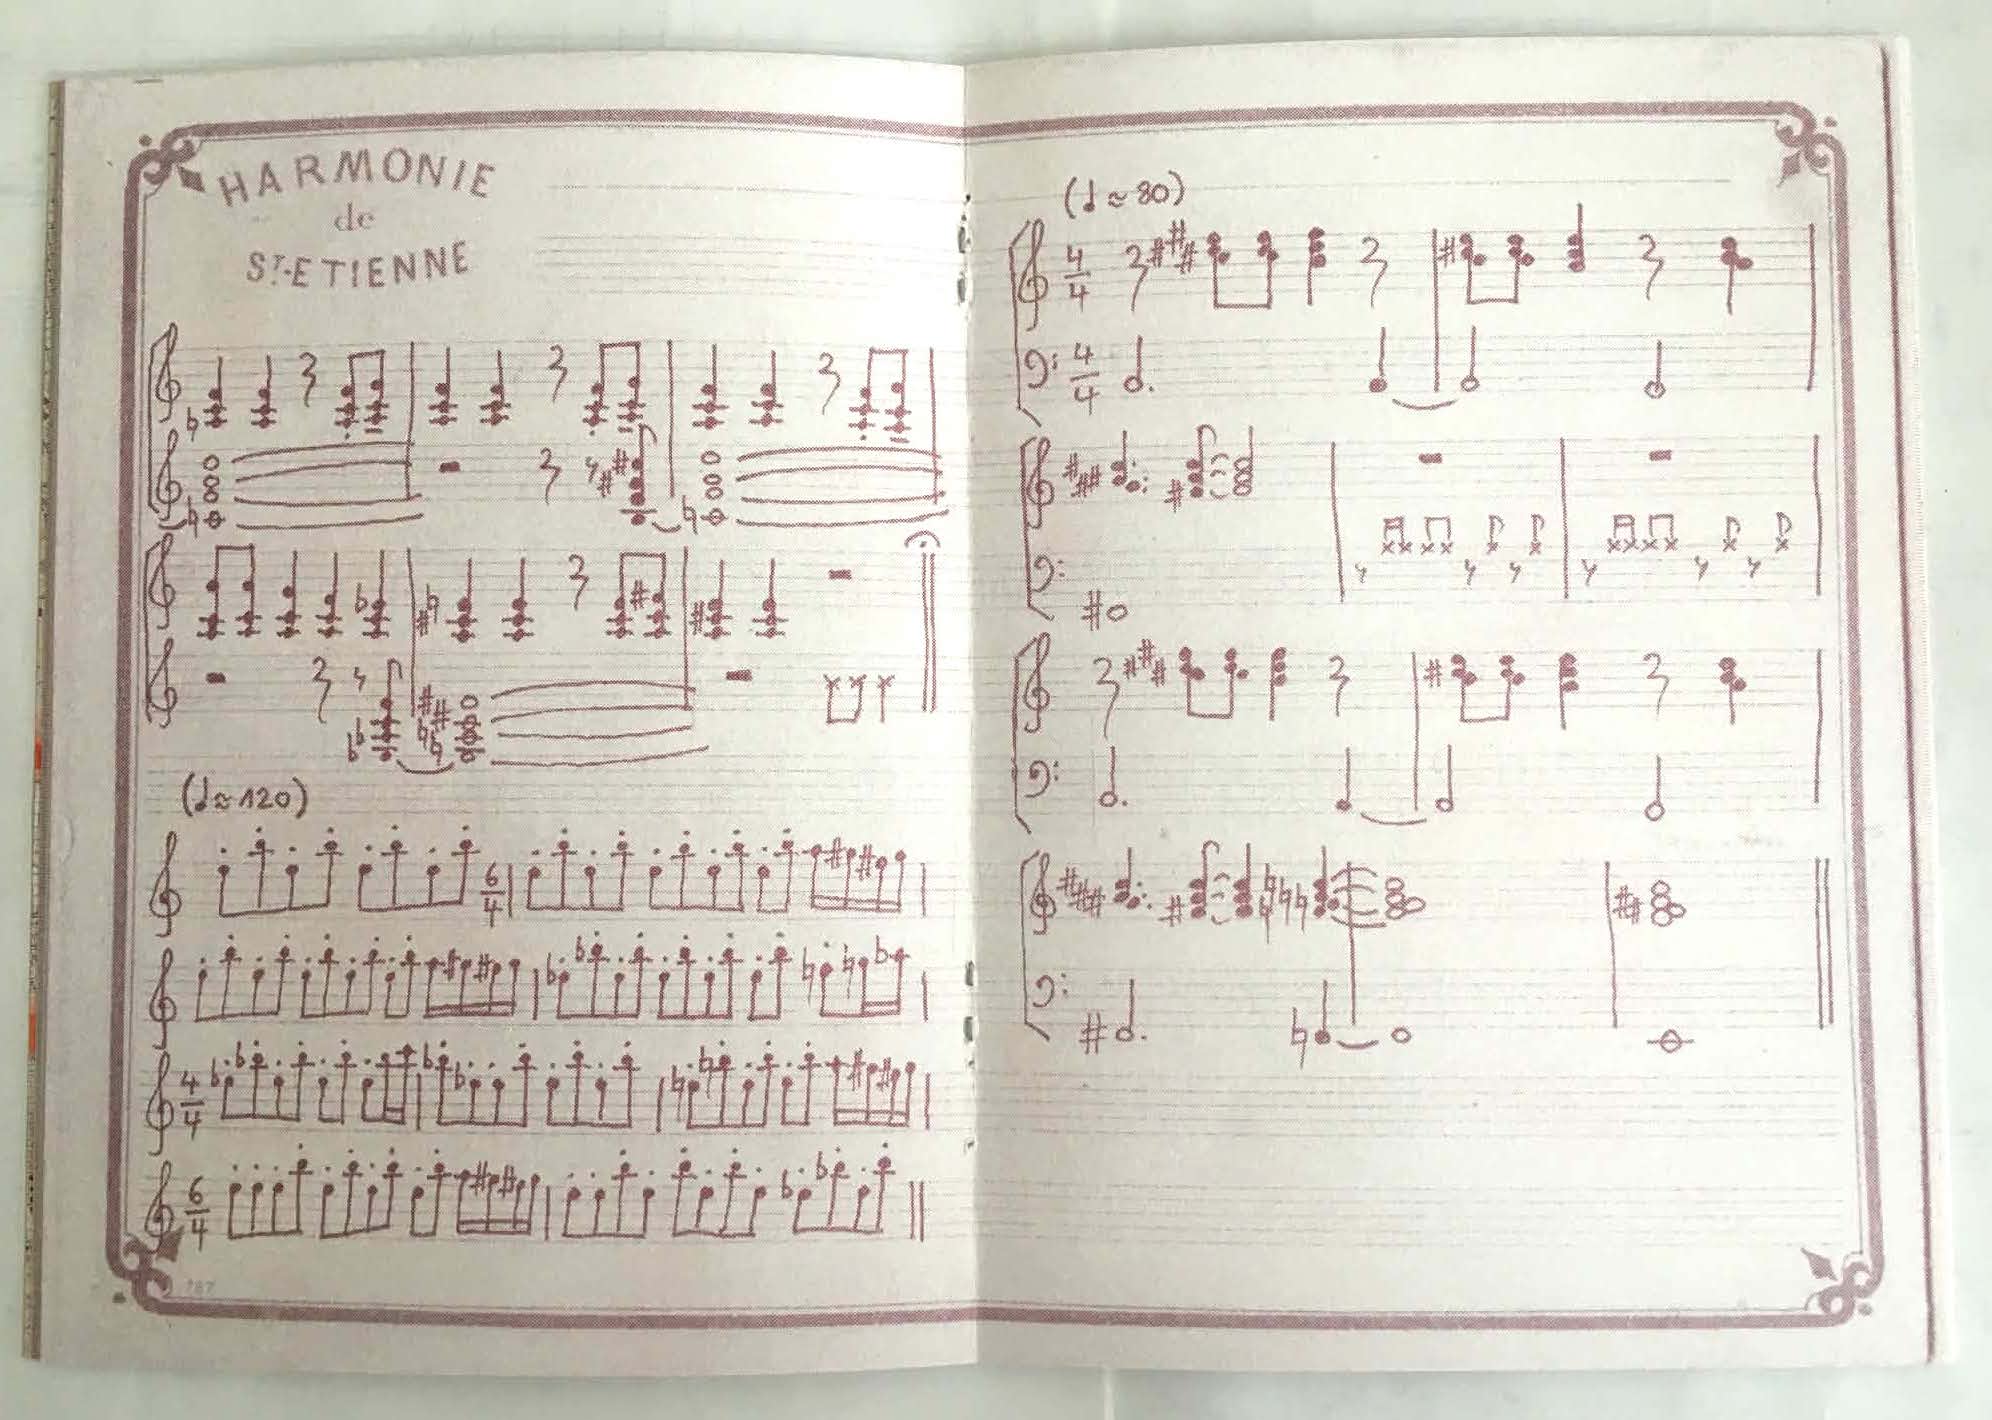 HARMONIE
de
ST-ETIENNE
(♩≈120)
6/4
4/4
6/4
787
(♩≈80)
4/4
4/4